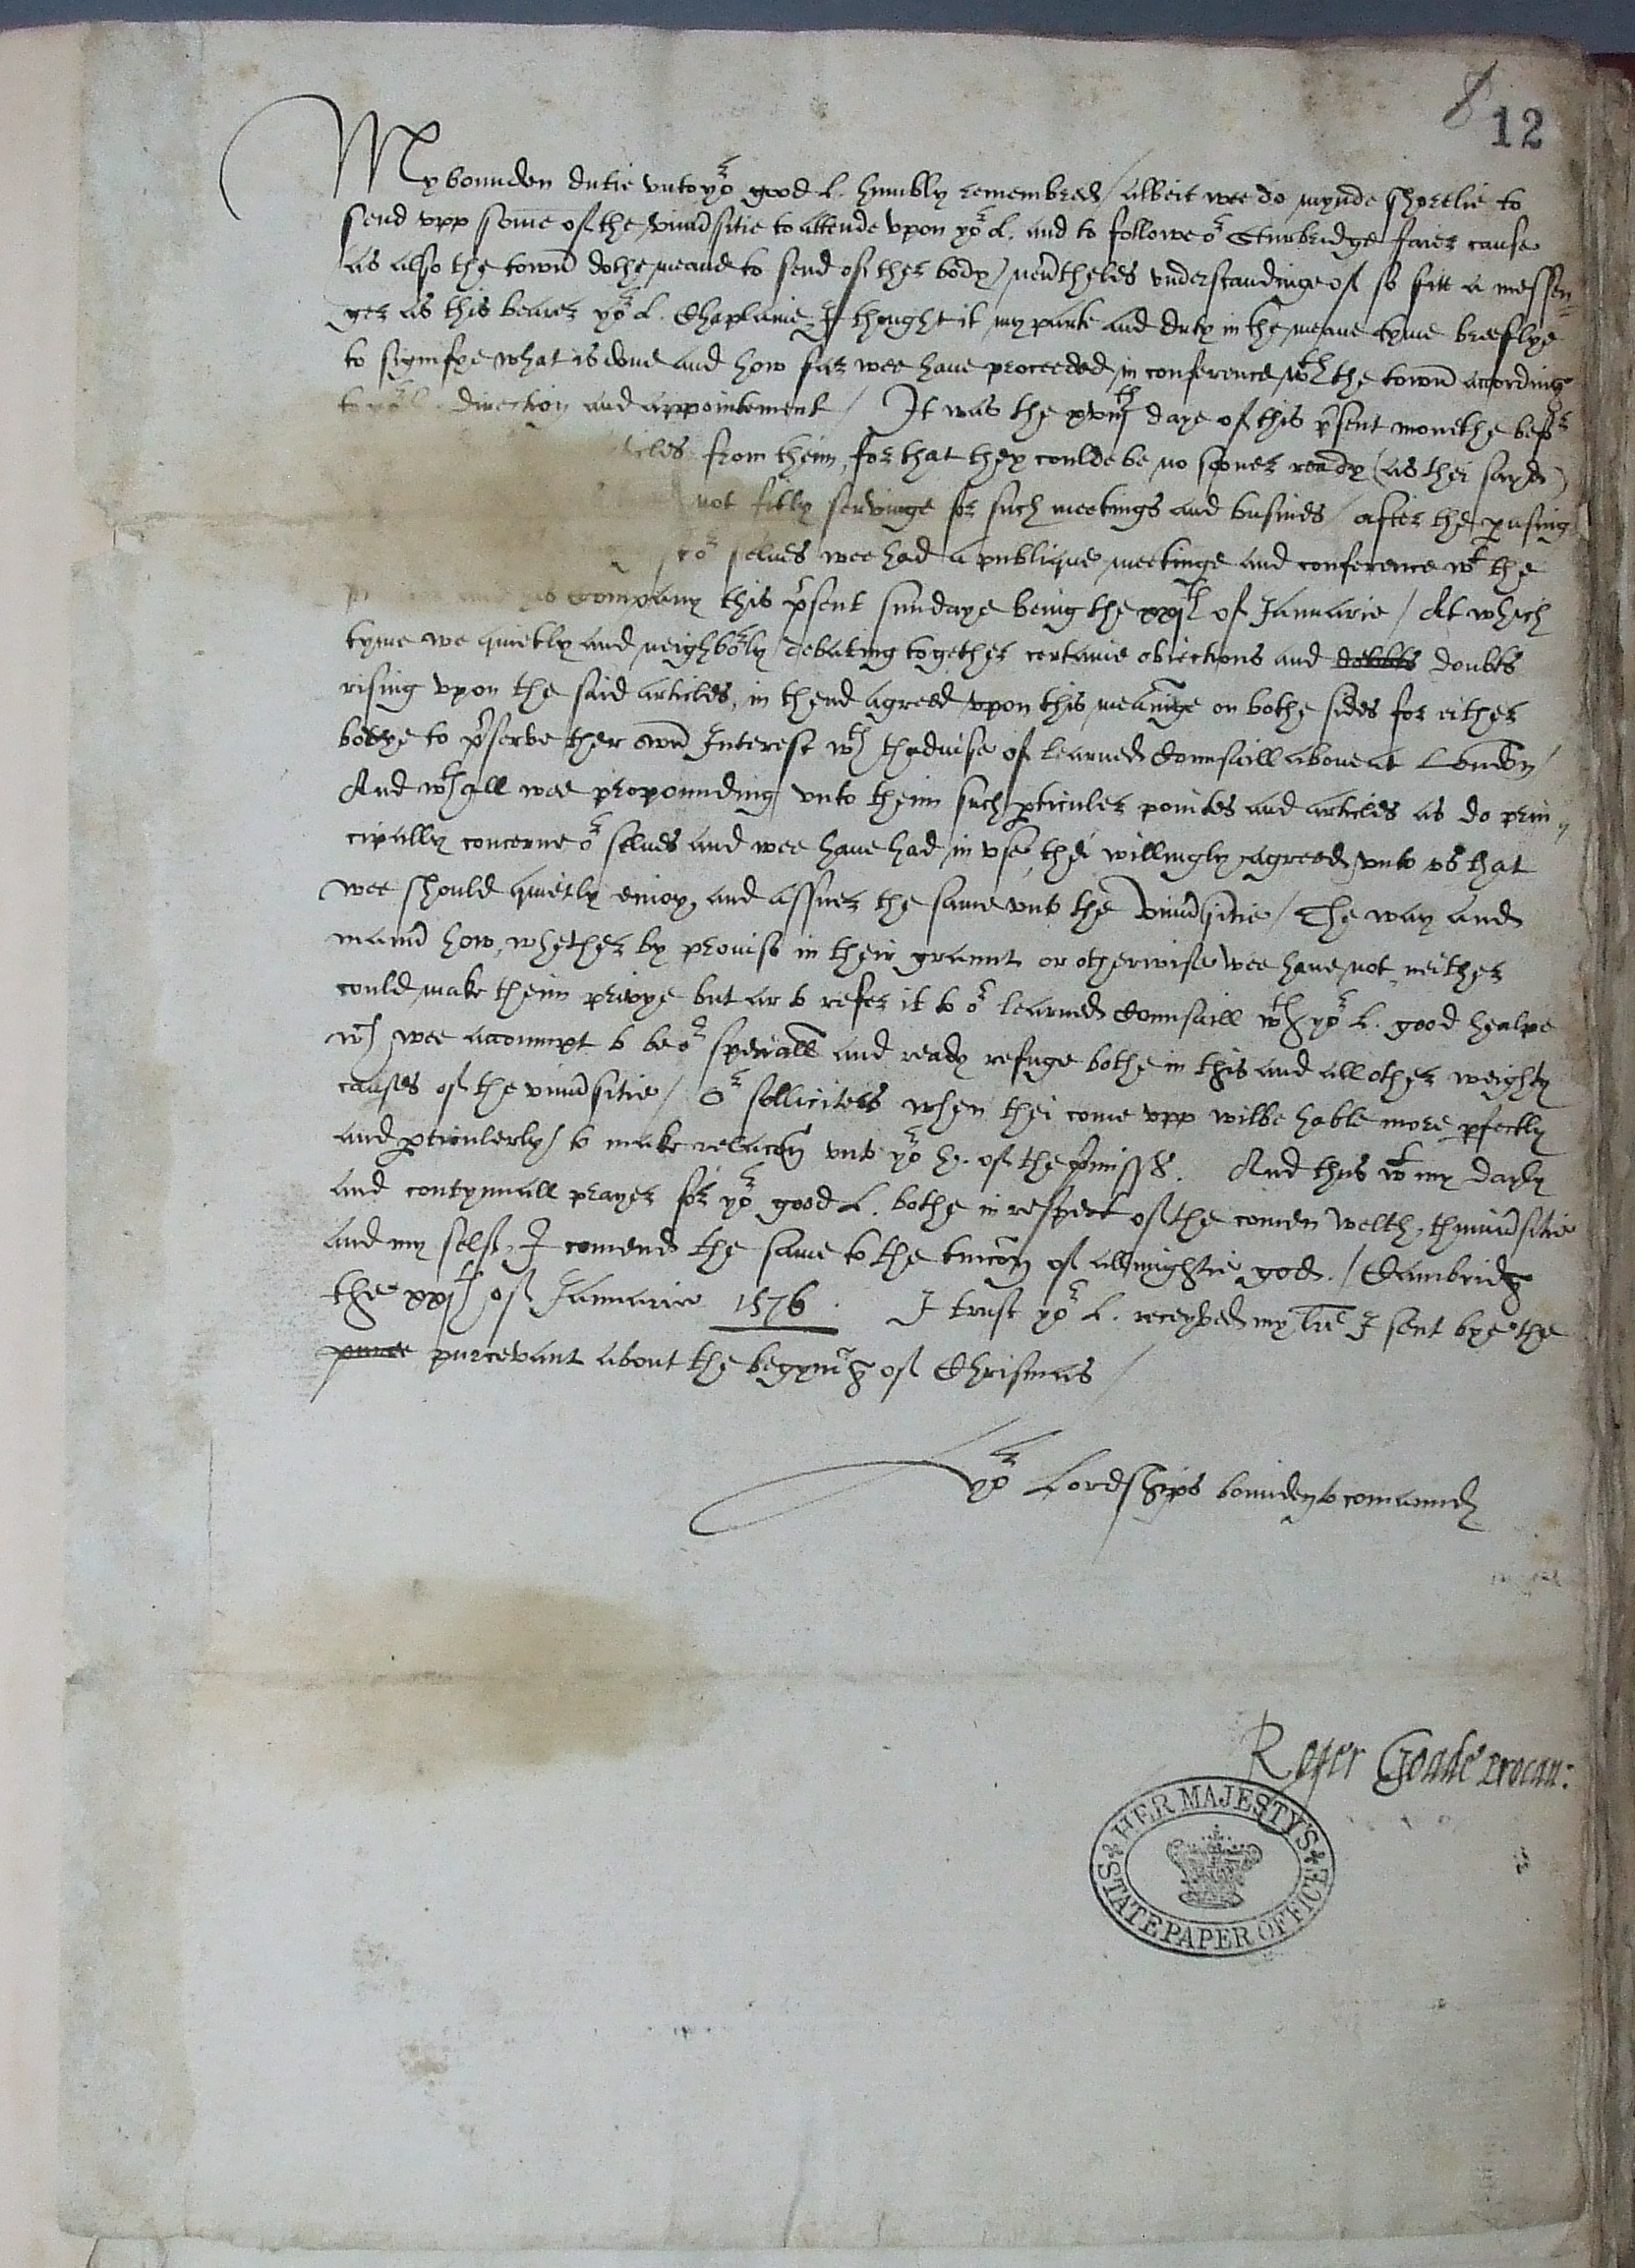 8
12
My bounden dutie vnto yor good L. humbly remembred / Albeit wee do mynde shortlie to
send vpp some of the vniuersitie to attende vpon yor L. and to followe or Sturbridge faier cause
as also the town dothe meane to send of ther body / neuertheles vnderstandinge of so fitt a messen=
ger as this bearer yor L. Chaplaine, I thought it my parte and duty in the meane tyme breeflye
to signifye what is done and how far wee haue proceeded in conference wth the town according
direction and appointement / It was the xviijth daye of this psent monethe befor
from theim, for that they coulde be no sooner ready (as thei sayd)
not fitly servinge for such meetings and busines / after the pusing
or selues wee had a publique meetinge and conference wt the
company this psent sundaye being the xxjth of Januarie / At which
tyme we quietly and neighborly debating together certaine obiections and doubts
rising vpon the said articles, in thend agreed vpon this meaninge on bothe sides for either
bodye to pserve ther own Interest wth thaduise of learned Counsaill aboue at London /
And wthall wee propounding vnto theim such pticuler pointes and articles as do prin=
cipally concerne or selues and wee haue had in vse, thei willingly agreed vnto vs that
wee should quietly enioy, and assuer the same vnto the Vniuersitie / The way and
maner how, whether by prouiso in their graunt or otherwise wee haue not, neither
could make theim privye but ar to refer it to or learned Counsaill wth yor L. good healpe
wch wee accoumpt to be or speciall and ready refuge bothe in this and all other weighty
causes of the vniuersitie / Or solliciters when thei come vpp wilbe hable more pfectly
and pticulerly to make relacon vnto yor h. of the pmisses. And thus wt my dayly
and contynuall prayer for yor good L. bothe in respect of the comen welth, thuniuersitie
and my self, I comend the same to the tuicon of allmightie god. / Cambridg
the xxjth of Januarie 1576. I trust yor L. receyved my lre I sent bye the
purce purcevant about the begyning of Christmas /
yor Lordships bounden to comaund
Roger Goade procan:
HER MAJESTY'S
STATE PAPER OFFICE